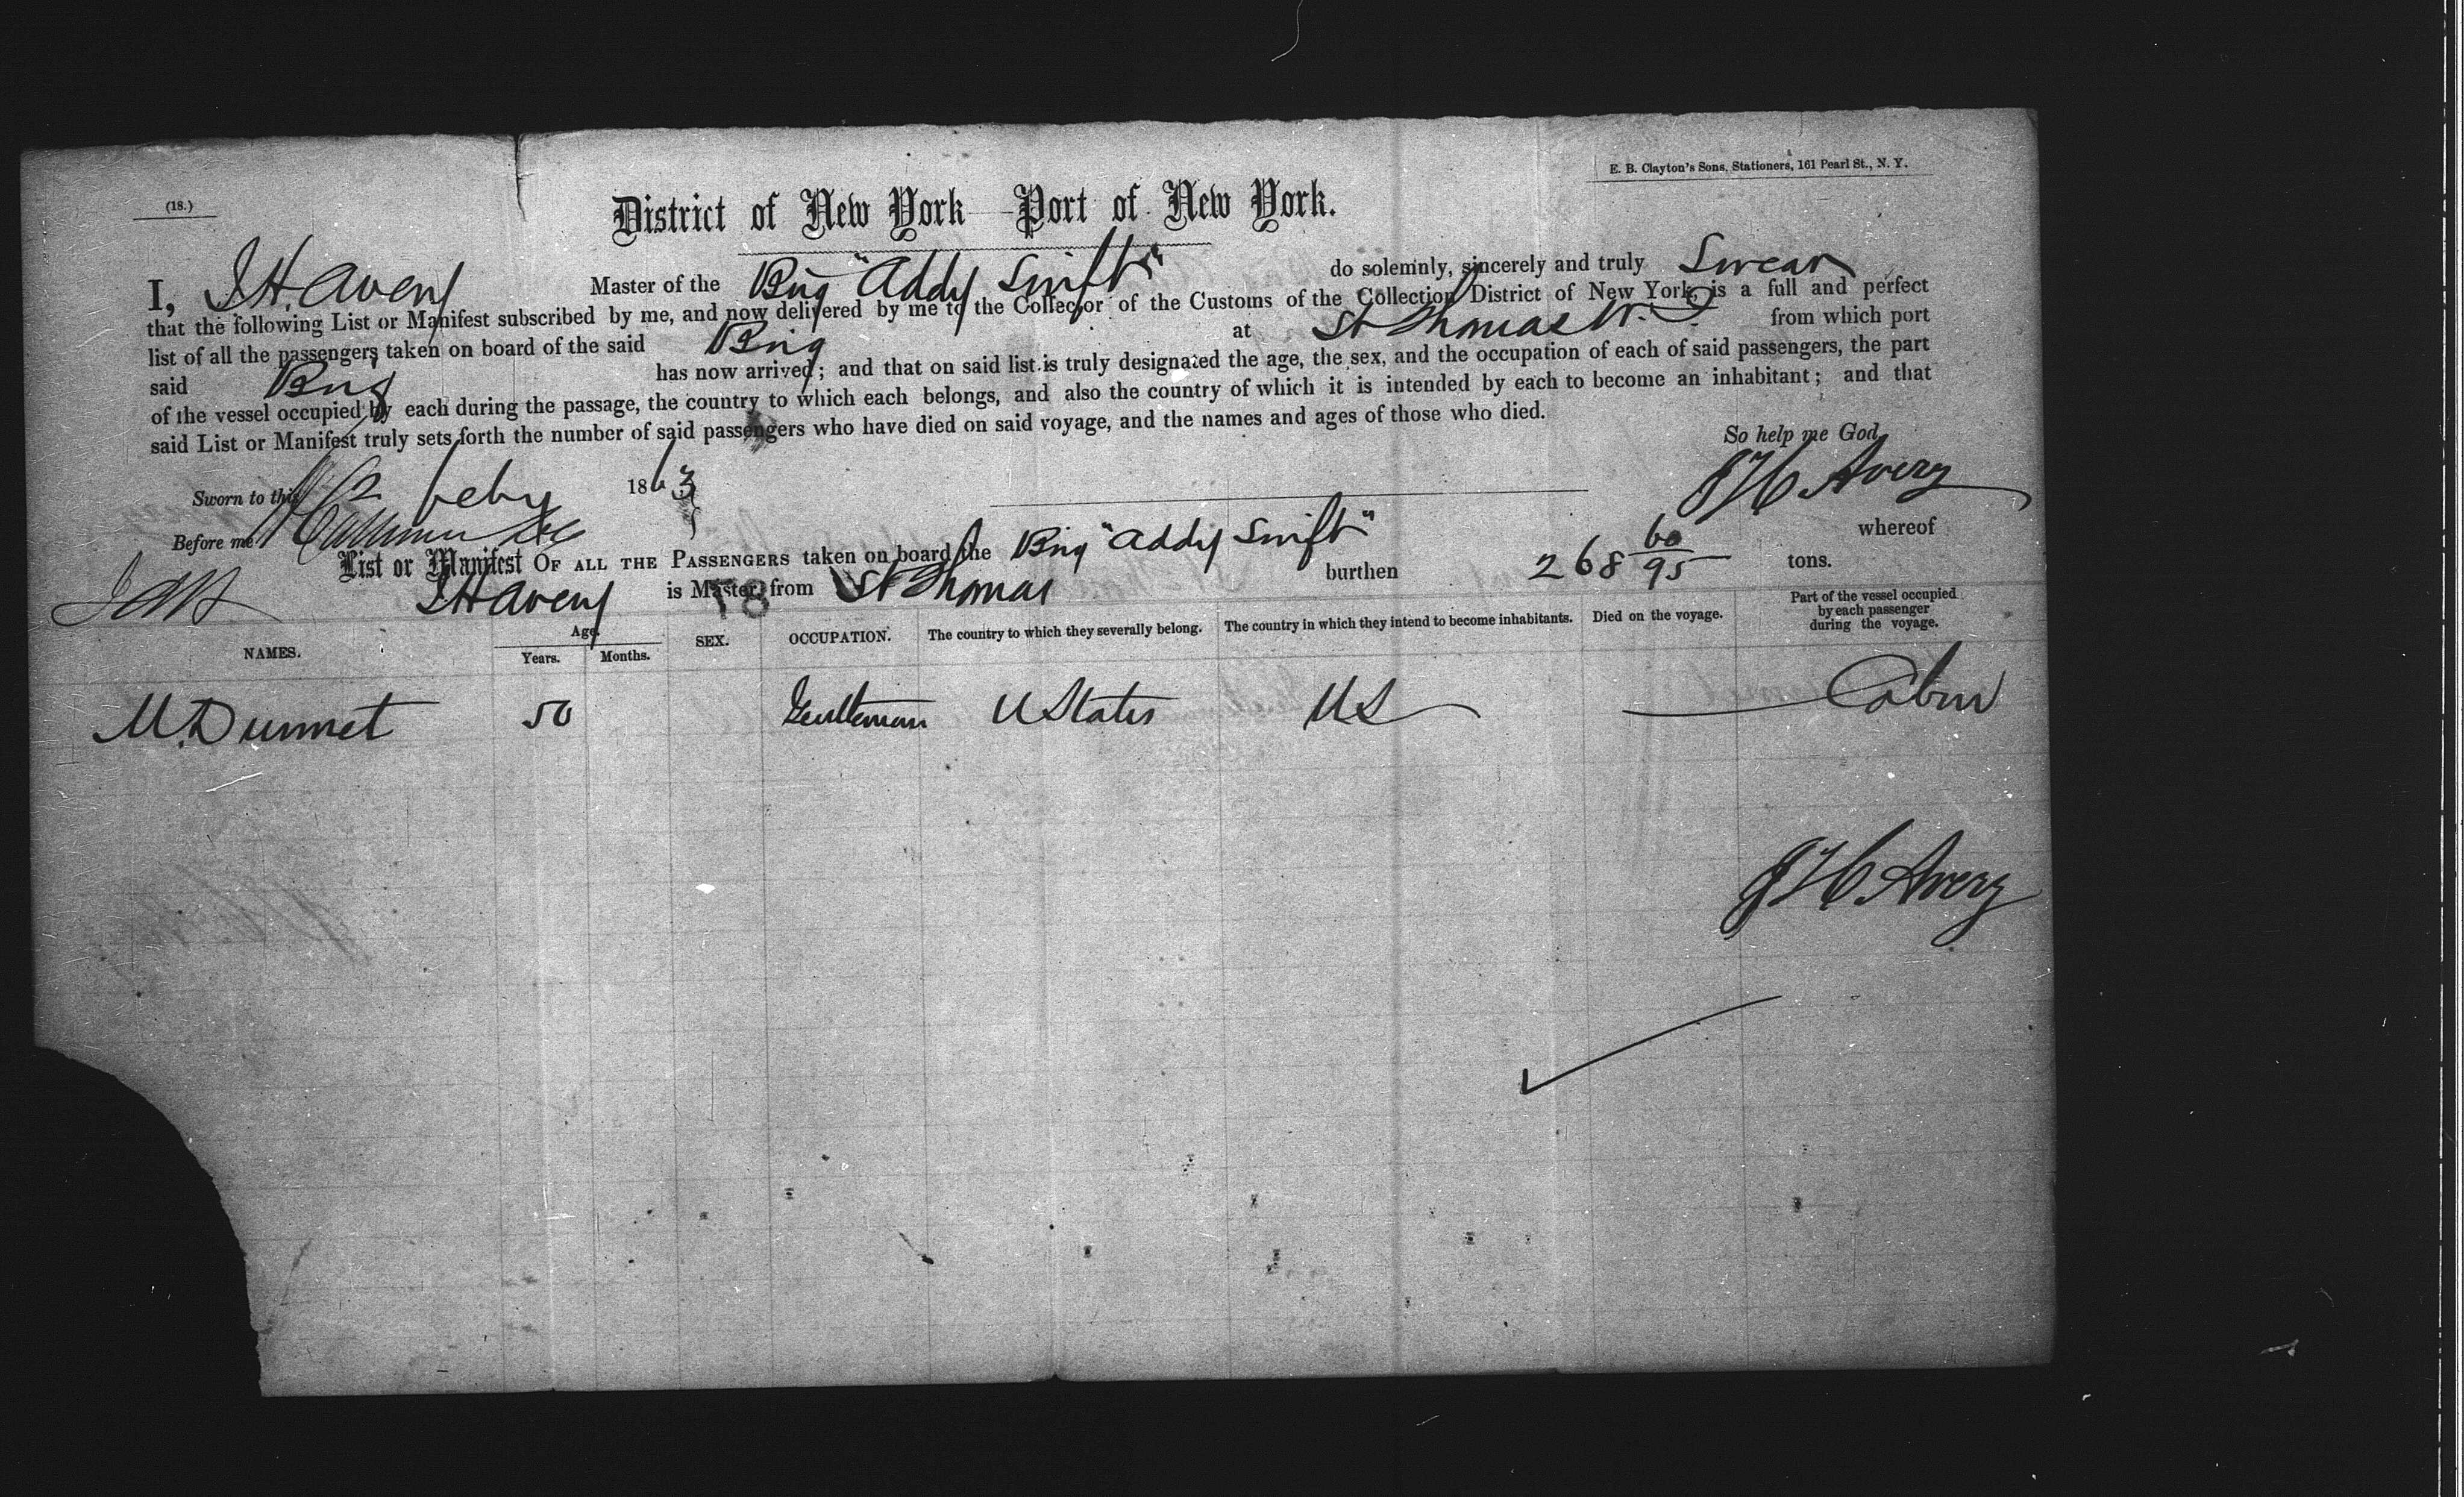 E. B. Clayton's Sons, Stationers, 161 Pearl St., N. Y.
(18.)
District of New York—Port of New York.
I, J H. Avery Master of the Brig "Addy Swift" do solemnly, sincerely and truly Swear
that the following List or Manifest subscribed by me, and now delivered by me to the Collector of the Customs of the Collection District of New York, is a full and perfect
list of all the passengers taken on board of the said Brig at St Thomas W. I. from which port
said Brig has now arrived; and that on said list is truly designated the age, the sex, and the occupation of each of said passengers, the part
of the vessel occupied by each during the passage, the country to which each belongs, and also the country of which it is intended by each to become an inhabitant; and that
said List or Manifest truly sets forth the number of said passengers who have died on said voyage, and the names and ages of those who died.
So help me God
Sworn to this 12 feby 1863 J H Avery
Before me
List or Manifest OF ALL THE PASSENGERS taken on board the Brig "Addy Swift" whereof
J H Avery is Master, from St Thomas burthen 268 60/95 tons.
78
NAMES. Age. Years. Months. SEX. OCCUPATION. The country to which they severally belong. The country in which they intend to become inhabitants. Died on the voyage. Part of the vessel occupied by each passenger during the voyage.
M. Dunnet 50 Gentleman U States US Cabin
J H Avery